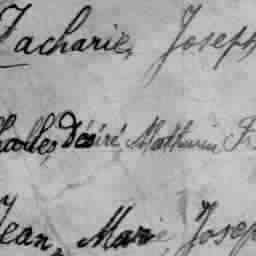 Zacharie, Joseph
Charles, Désiré Mathurin F
Jean, Marie, Josep